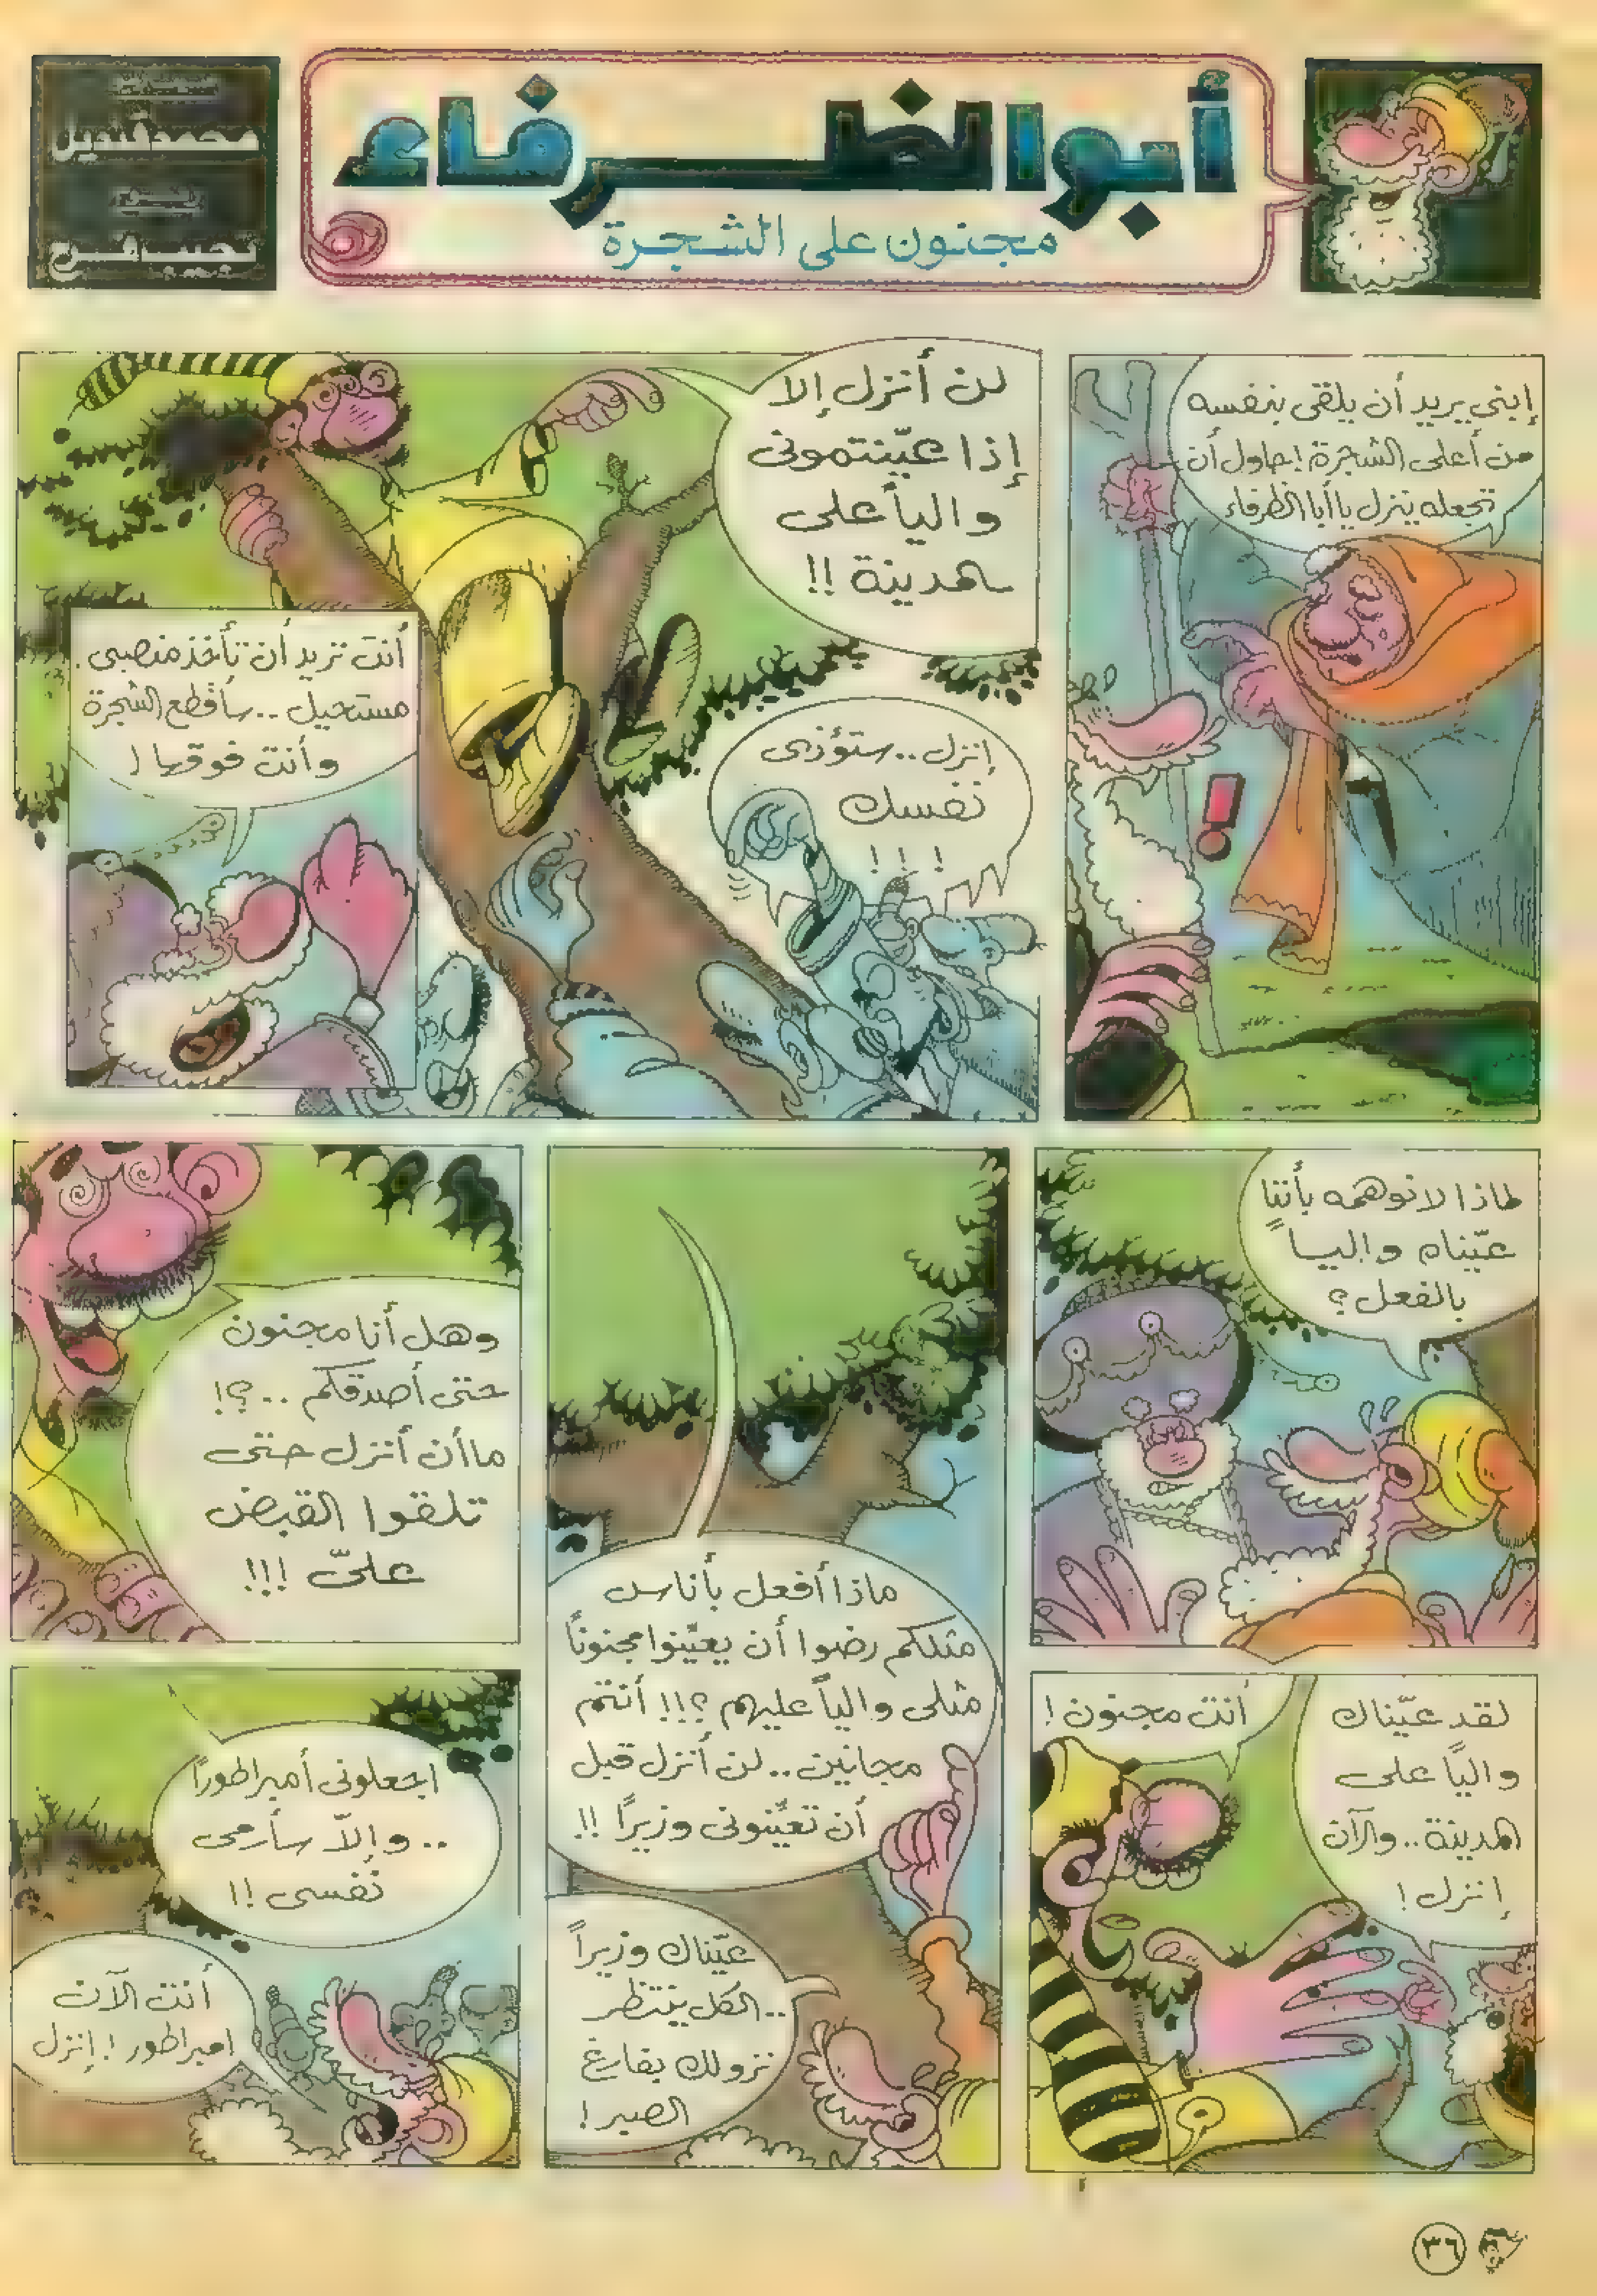 أبو الظرفاء
مجنون على الشجرة
محمد قنديل
نجيب فرج
إبنى يريد أن يلقى بنفسه
من أعلى الشجرة! حاول أن
تجعله ينزل يا أبا الظرفاء
لن أنزل إلا
إذا عيّنتمونى
والياً على
المدينة !!
إنزل.. ستؤذى
نفسك
! ! !
أنت تريد أن تأخذ منصبى.
مستحيل.. سأقطع الشجرة
وأنت فوقها!
لماذا لا نوهمه بأننا
عيّناه والياً
بالفعل؟
لقد عيّناك
والياً على
المدينة.. والآن
إنزل!
أنت مجنون!
وهل أنا مجنون
حتى أصدقكم ..؟!
ما أن أنزل حتى
تلقوا القبض
علىّ !!!
ماذا أفعل بأناس
مثلكم رضوا أن يعيّنوا مجنوناً
مثلى والياً عليهم ؟!! أنتم
مجانين.. لن أنزل قبل
أن تعيّنونى وزيراً !!
عيّناك وزيراً
.. الكل ينتظر
نزولك بفارغ
الصبر!
اجعلونى أمبراطوراً
.. وإلاّ سأرمى
نفسى !!
أنت الآن
امبراطور! إنزل
٣٦